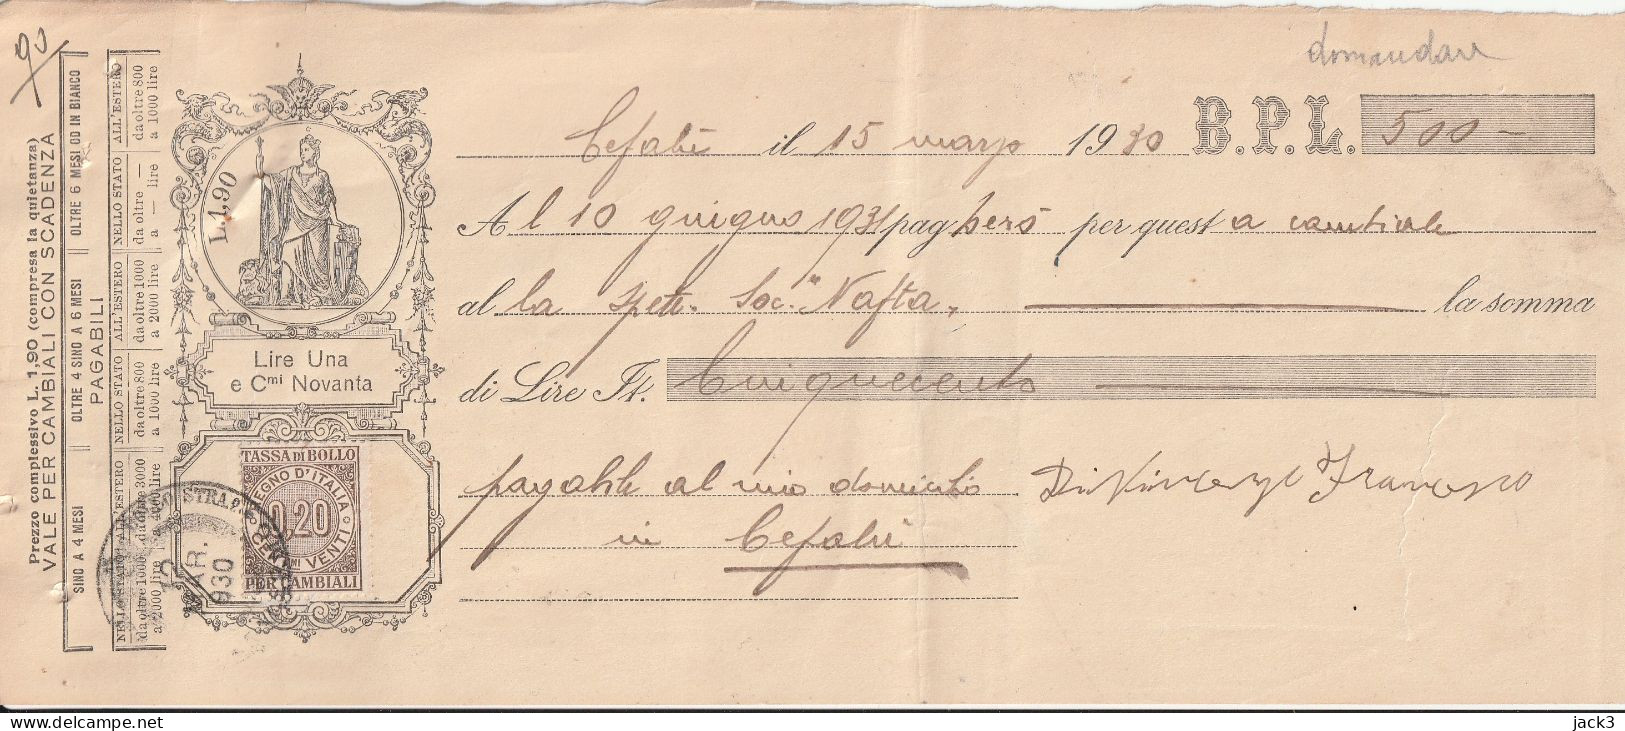 domandare
Cefalù il 15 marzo 1930 B.P.L. 500 -
Al 10 giugno 1931 pagherò per questa cambiale
al la Spett. Soc. "Nafta, la somma
di Lire It. Cinquecento
pagabile al mio domicilio
in Cefalù
Francesco
90
Prezzo complessivo L. 1,90 (compresa la quietanza)
VALE PER CAMBIALI CON SCADENZA
SINO A 4 MESI OLTRE 4 SINO A 6 MESI OLTRE 6 MESI OD IN BIANCO
PAGABILI
NELLO STATO ALL'ESTERO NELLO STATO ALL'ESTERO NELLO STATO ALL'ESTERO
da oltre 1000 da oltre 3000 da oltre 800 da oltre 1000 da oltre — da oltre 800
a 2000 lire a 4000 lire a 1000 lire a 2000 lire a — lire a 1000 lire
L.1,90
Lire Una
e Cmi Novanta
TASSA DI BOLLO
REGNO D'ITALIA
0,20
CENT.MI VENTI
PER CAMBIALI
MAR.
930
delcampe.net
jack3